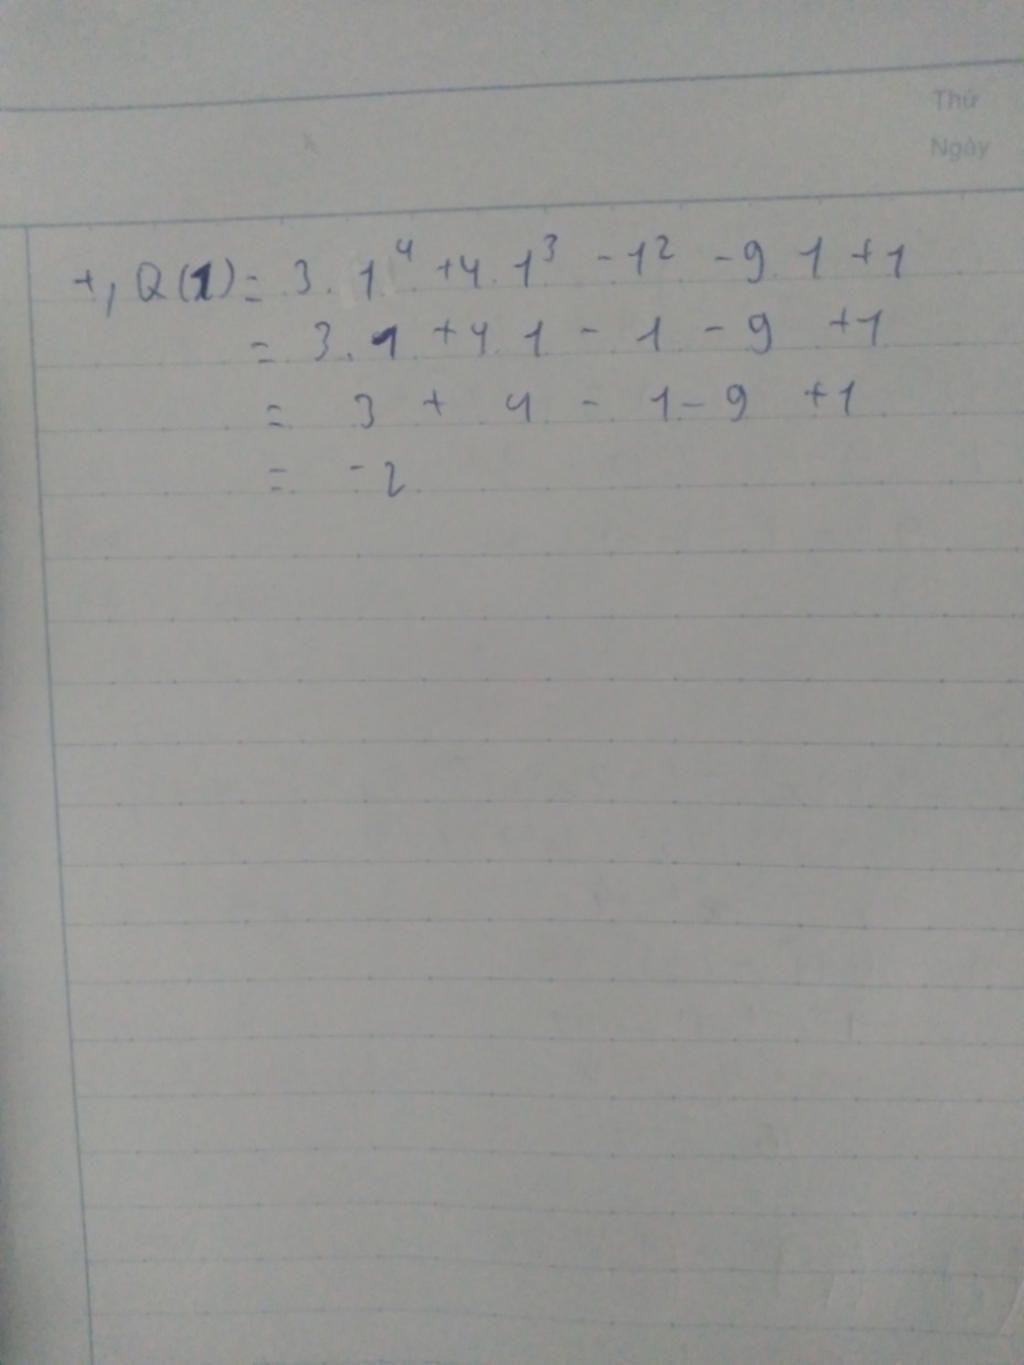 Thứ
Ngày
+, Q(1) = 3. 1⁴ +4. 1³ - 1² - 9 1 + 1
= 3. 1 + 4 1 - 1 - 9 + 1
= 3 + 4 - 1 - 9 + 1
= - 2